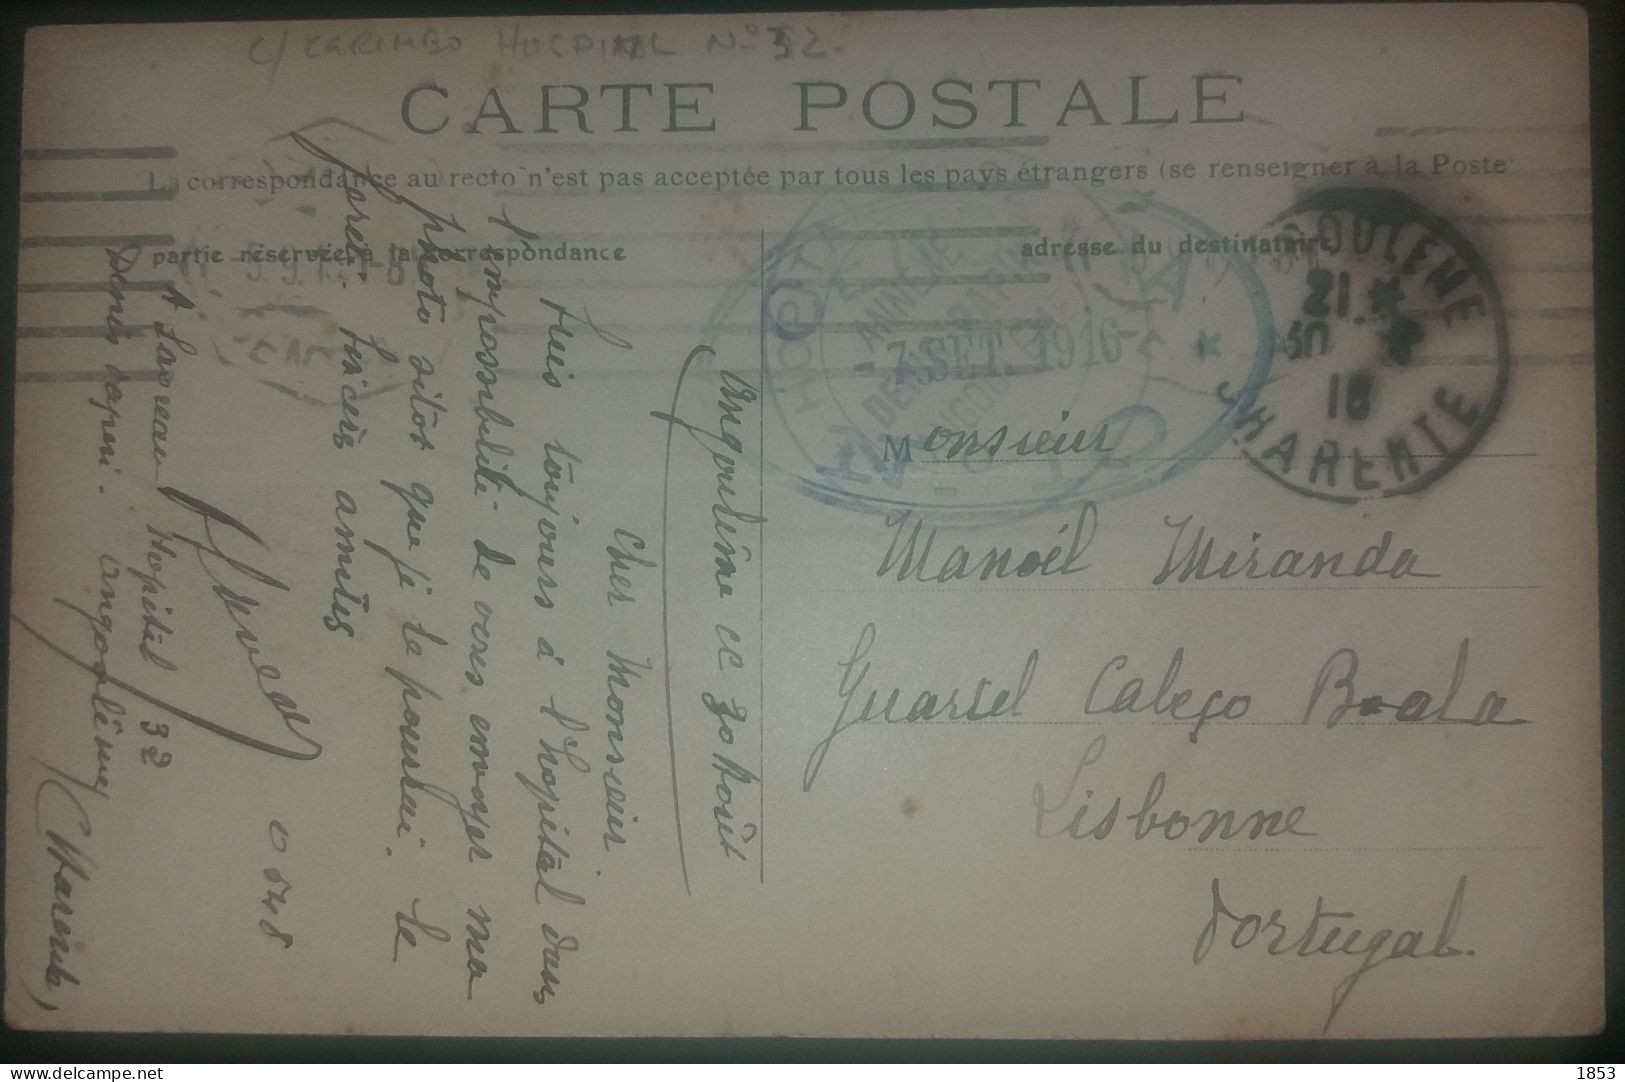 C/ CARIMBO HOSPITAL Nº 32.
CARTE POSTALE
La correspondance au recto n'est pas acceptée par tous les pays étrangers (se renseigner à la Poste
partie réservée à la correspondance
adresse du destinataire
ANGOULEME
21 *
30 8
16
CHARENTE
- 7 SET. 1916 -
HOPITAL
ANNEXE
Monsieur
Manoël Miranda
Lisbonne
Portugal.
Angoulême le 30 Août
Cher Monsieur
Suis toujours à l'hopital dans
l'impossibilité de vous envoyer ma
photo sitôt que je le pourrai. le
ferai. Sincères amitiés
Hôpital 32
Denis Papin. Angoulême
(Charente)
www.delcampe.net
1853